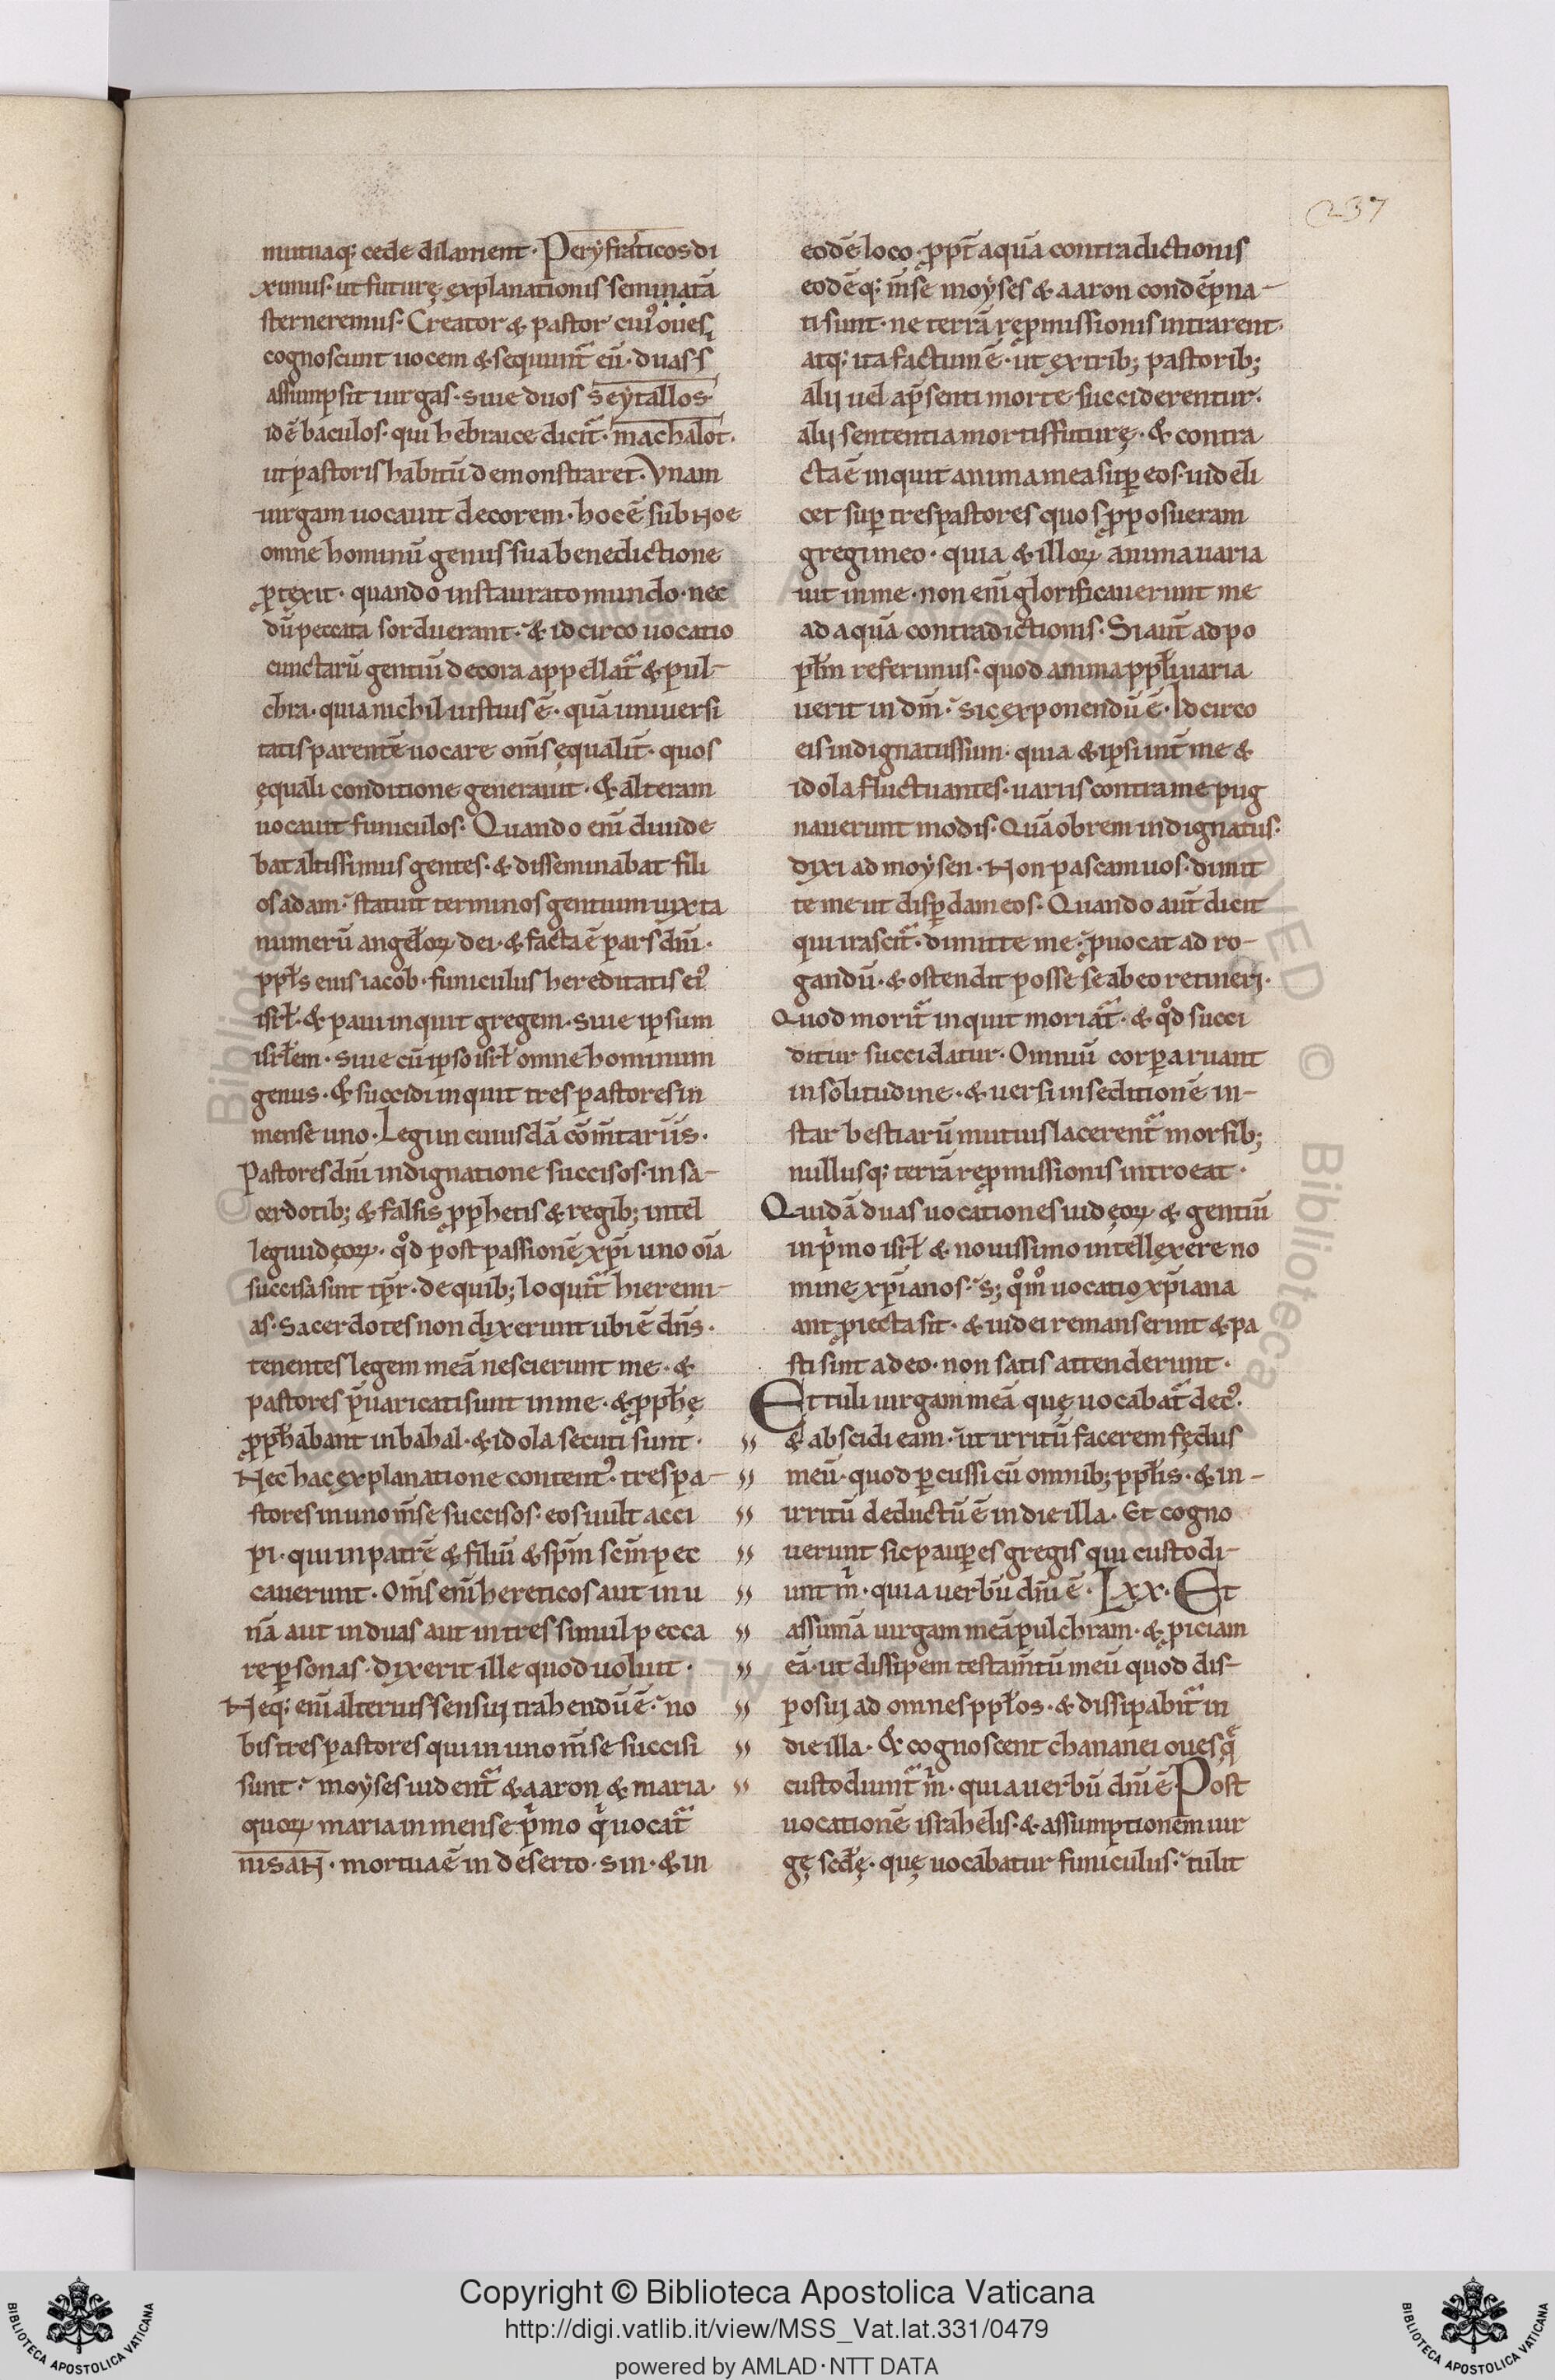 237
mutuaq; cede dilanient. Peryfraticos di
ximus. ut futurę explanationis seminatā
sterneremus. Creator & pastor cui᾽ oues
cognoscunt uocem & sequunt᷑ eū. duas s
assumpsit uirgas. siue duos seytallos.
idē baculos. qui hebraice dicit᷑. machalot.
ut pastoris habitū demonstraret. Vnam
uirgam uocauit decorem. hoc ē sub Noe
omne hominū genus sua benedictione
ꝓtexit. quando instaurato mundo. nec
dū peccata sorduerant. & idcirco uocatio
cunctarū gentiū decora appellat᷑ & pul-
chra. quia nichil iustius ē. quā uniuersi
tatis parentē uocare om̄s equalit̄. quos
ęquali conditione generauit. & alteram
uocauit funiculos. Quando eni᷑ diuide
bat altissimus gentes. & disseminabat fili
os adam. statuit terminos gentium iuxta
numerū angeloꝝ dei. & facta ē pars dn̄i.
ppl̄s eius iacob. funiculus hereditatis ei᾽
isrł. & paui inquit gregem. siue ipsum
isrłem. siue cū ipso isrł omne hominum
genus. & succidi inquit tres pastores in
mense uno. Legi in cuiusdā com̄tariis.
Pastores dn̄i indignatione succisos. in sa-
cerdotib; & falsis ꝓphetis & regib; intel
legi iudęoꝝ. qd̊ post passionē xp̄i uno oīa
succisa sint tp̄r. de quib; loquit᷑ hieremi-
as. Sacerdotes non dixerunt ubi ē dn̄s.
tenentes legem meā nescierunt me. &
pastores p̄uaricati sunt in me. & ꝓph̄ę
ꝓph̄abant in bahal. & idola secuti sunt.
Nec hac explanatione content᾽. tres pa-
stores in uno m̄se succisos. eos uult acci
pi. qui in patrē & filiū & sp̄m sc̄m pec
cauerunt. Om̄s eni᷑ hereticos aut in u
nā aut in duas aut in tres simul pecca
re ꝑsonas. dixerit ille quod uoluit.
Neq; eni᷑ alterius sensui trahendū ē. no
bis tres pastores qui in uno m̄se succisi
sunt. moyses uident᷑ & aaron & maria.
quoꝝ maria in mense pͥmo qͥ uocat᷑
nisan. mortua ē in deserto. sin. & in
eodē loco. ꝓpt̄ aquā contradictionis
eodēq; m̄se moyses & aaron condēpna-
ti sunt. ne terrā reꝓmissionis intrarent.
atq; ita factum ē. ut ex trib; pastorib;
alii uel ap̄senti morte succiderentur.
alii sententia mortis futurę. & contra
cta ē inquit anima mea suꝑ eos. uideli
cet suꝑ tres pastores quos ꝓposueram
gregi meo. quia & illoꝝ anima uaria
uit in me. non eni᷑ glorificauerunt me
ad aquā contradictionis. Si aut̄ ad po
pl̄m referimus. quod anima ppl̄i uaria
uerit in dn̄m. sic exponendū ē. Idcirco
eis indignatus sum. quia & ipsi int̄ me &
idola fluctuantes. uariis contra me pug
nauerunt modis. Quāobrem indignatus.
dixi ad moysen. Non pascam uos. dimit
te me ut disꝑdam eos. Quando aut̄ dicit
qui irascit᷑. dimitte me. ꝓuocat ad ro-
gandū. & ostendit posse se ab eo retineri.
Quod morit᷑ inquit moriat᷑. & qd̊ succi
ditur succidatur. Omniū corpora ruant
in solitudine. & uersi in seditionē in-
star bestiarū mutuis lacerent᷑ morsib;
nullusq; terrā reꝓmissionis introeat.
Quidā duas uocationes iudęoꝝ & gentiū
in pͥmo isrł & nouissimo intellexere no
mine xp̄ianos. s; qm̊ uocatio xp̄iana
ant ꝓiecta sit. & iudei remanserint & pa
sti sint ab eo. non satis attenderunt.
Et tuli uirgam meā quę uocabat᷑ dec᾽.
& abscidi eam. ut irritū facerem fędus
meū. quod ꝑcussi cū omnib; ppl̄is. & in-
irritū deductū ē in die illa. Et cogno
uerunt sic pauꝑes gregis qui custodi-
unt mͥ. quia uerbū dn̄i ē. Lxx. Et
assumā uirgam meā pulchram. & ꝓiciam
eā. ut dissipem testam̄tū meū quod dis-
posui ad omnes ppl̄os. & dissipabit᷑ in
die illa. & cognoscent chananei oues qͤ
custodiunt᷑ mͥ. quia uerbū dn̄i ē Post
uocationē israhelis. & assumptionem uir
gę scd̄ę. quę uocabatur funiculus. tulit
Copyright © Biblioteca Apostolica Vaticana
http://digi.vatlib.it/view/MSS_Vat.lat.331/0479
powered by AMLAD · NTT DATA
BIBLIOTECA APOSTOLICA VATICANA
BIBLIOTECA APOSTOLICA VATICANA